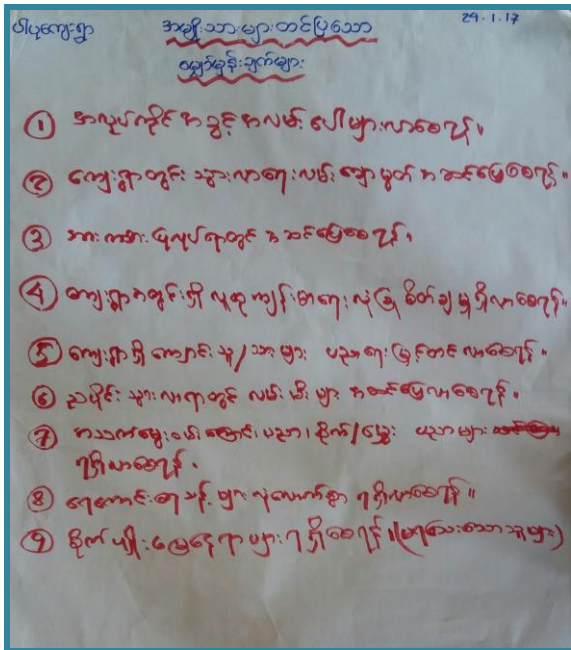 ပါပုကျေးရွာ
အမျိုးသားများတင်ပြသော
29.1.17
မျှော်မှန်းချက်များ
① အလုပ်အကိုင်အခွင့်အလမ်းပေါများလာစေရန်။
② ကျေးရွာတွင်းသွားလာရေးလမ်းချောမွတ်အဆင်ပြေစေရန်။
③ အားကစားပြုလုပ်ရာတွင်အဆင်ပြေစေရန်။
④ ကျေးရွာအတွင်းရှိလူထုကျန်းမာရေးလုံခြုံစိတ်ချမှုရှိလာစေရန်။
⑤ ကျေးရွာရှိကျောင်းသူ/သားများ ပညာရေးမြှင့်တင်လာစေရန်။
⑥ ညပိုင်းသွားလာရာတွင်လမ်းမီးများအဆင်ပြေလာစေရန်။
⑦ အသက်မွေးဝမ်းကြောင်းပညာ၊ စိုက်/မွေး ပညာများ
ရရှိလာစေရန်။
⑧ ရေကောင်းရေသန့်များလုံလောက်စွာရရှိလာစေရန်။
⑨ စိုက်ပျိုးမြေနေရာများရရှိစေရန်။ (မရသေးသောသူများ)